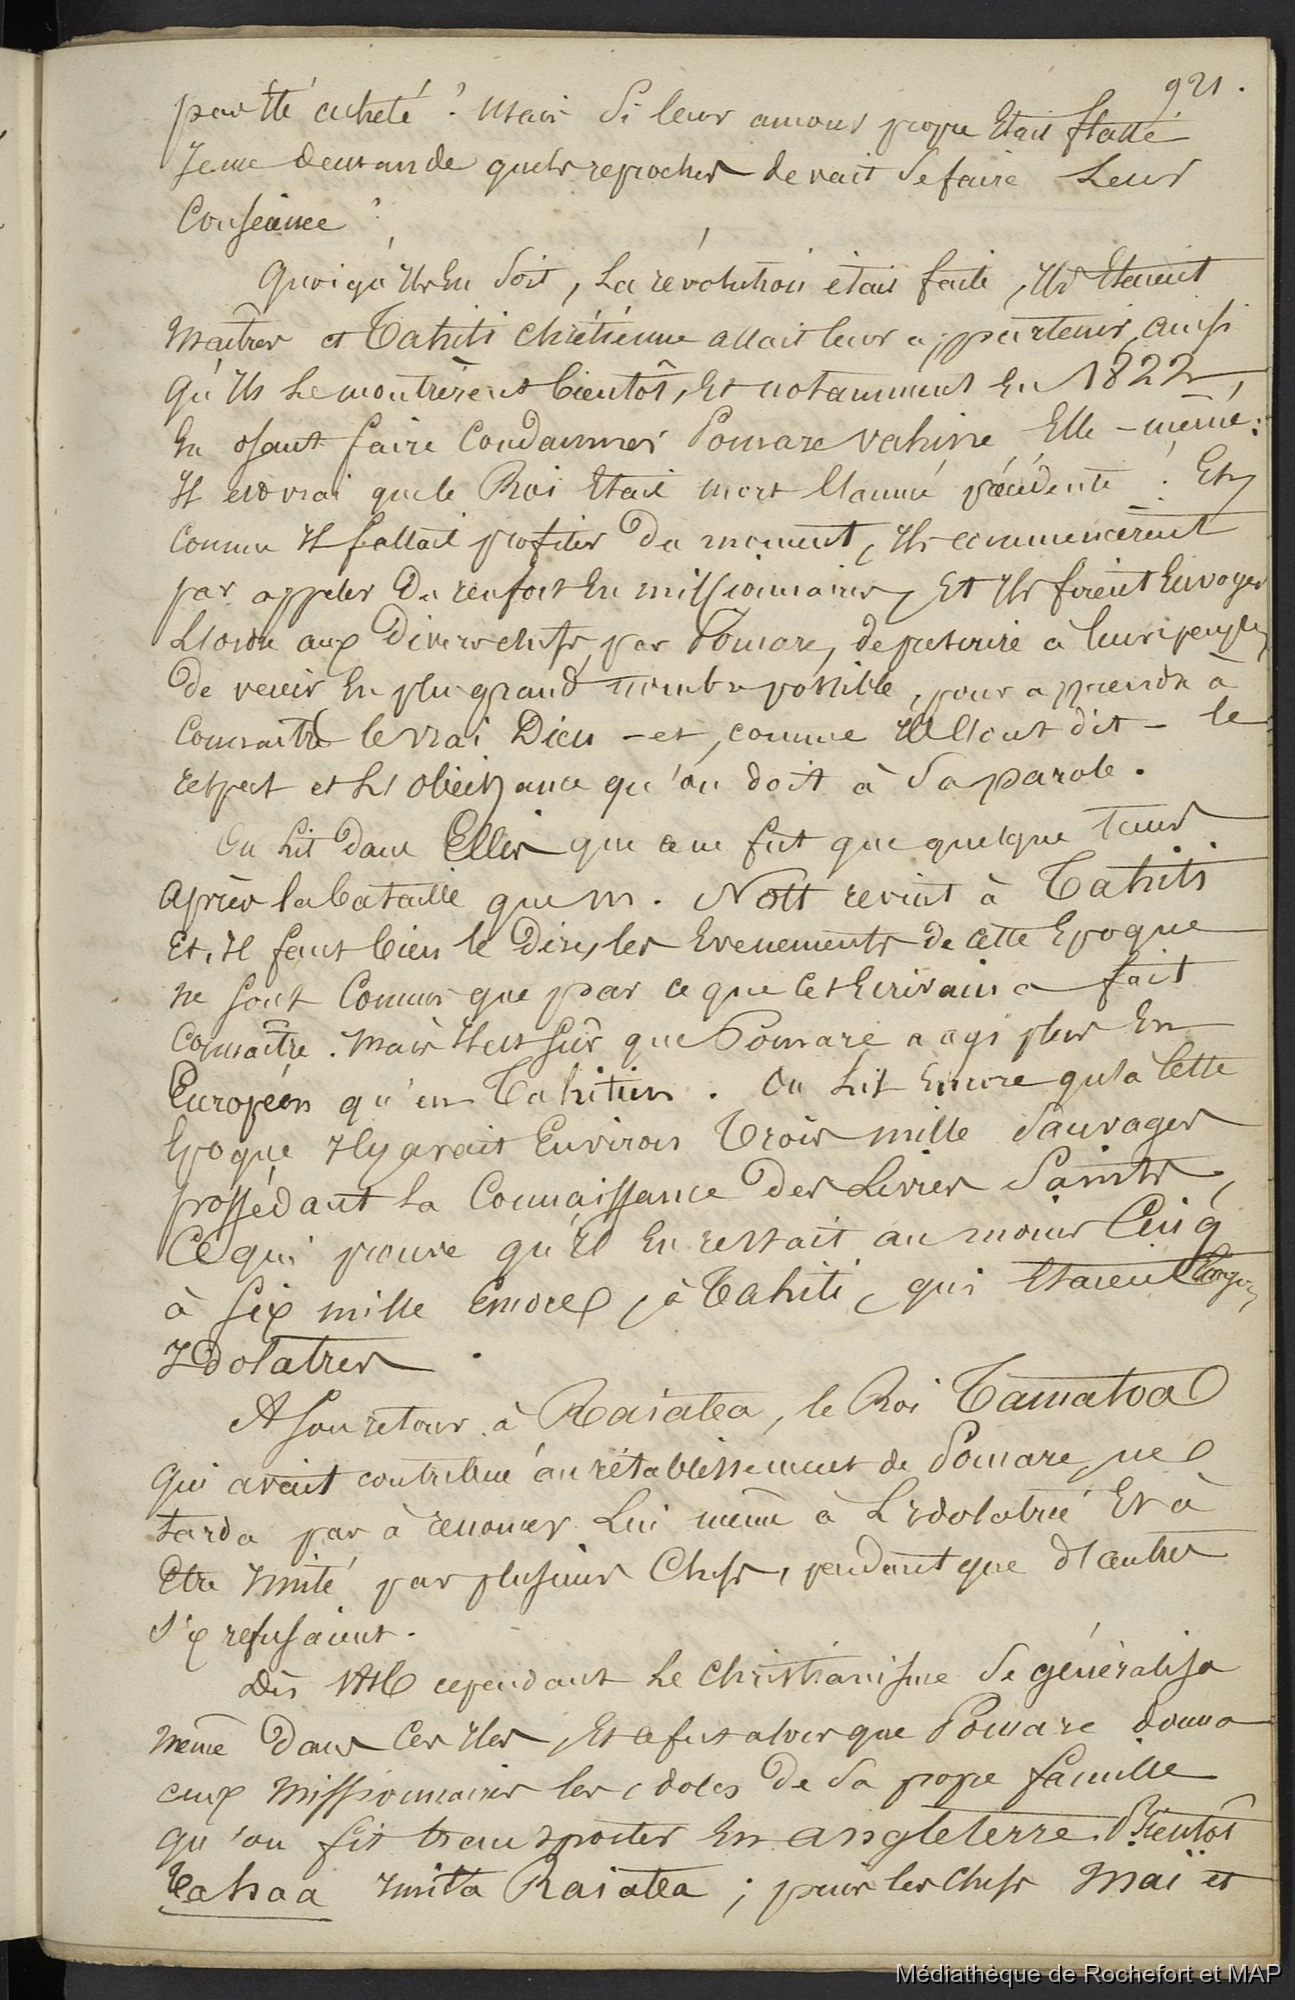 921.
pas été acheté ? Mais si leur amour propre était flatté
Je me demande quels reproches devait se faire Leur
Conscience ?
Quoiqu'ils En soit, La révolution était faite, Ils Etaient
Maîtres et Tahiti chrétienne allait leur appartenir, ainsi
qu'Ils Le montrèrent bientôt, Et notamment En 1822,
En osant faire Condamner Pomare vahine Elle-même :
Il est vrai que le Roi Etait mort L'année précédente ! Et,
comme Il fallait profiter du moment, Ils commencèrent
par appeler Du renfort En missionnaires, Et Ils firent Envoyer
L'ordre aux Divers chefs, par Pomare, de prescrire à leurs peuples
de venir En plus grand nombre possible, pour apprendre à
Connaître le vrai Dieu - et, comme Ill'ont dit - le
respect et L'obéissance qu'on doit à Sa parole.
On Lit Dans Ellis que ce ne fut que quelque tems
Après la bataille que M. Nott revint à Tahiti
Et, Il faut bien le Dire, les Evenements de cette Epoque
ne sont Connus que par ce que cet Ecrivain a fait
Connaître. Mais Il est sûr que Pomare a agi plus En
Européen qu'en Tahitien. On Lit Encore qu'à Cette
Epoque Il y avait Environ Trois mille Sauvages
possédant La Connaissance Des Livres Saints,
Ce qui prouve qu'Il En restait au moins Cinq
à Six mille Encore, à Tahiti, qui Etaient toujours
Idolatres.
A Son retour à Raiatea, le Roi Tamatoa
qui avait contribué au rétablissement de Pomare, ne
tarda pas à renoncer Lui même à L'Idolatrie Et à
Etre Imité par plusieurs Chefs, pendant que d'autres
s'y refusaient.
Dès 1816 cependant Le Christianisme Se généralisa
même Dans Ces Iles, Et ce fut alors que Pomare donna
aux Missionnaires les idoles De Sa propre famille
qu'on fit transporter En Angleterre. Bientôt
Tahaa Imita Raiatea ; puis les Chefs Maï et
Médiathèque de Rochefort et MAP